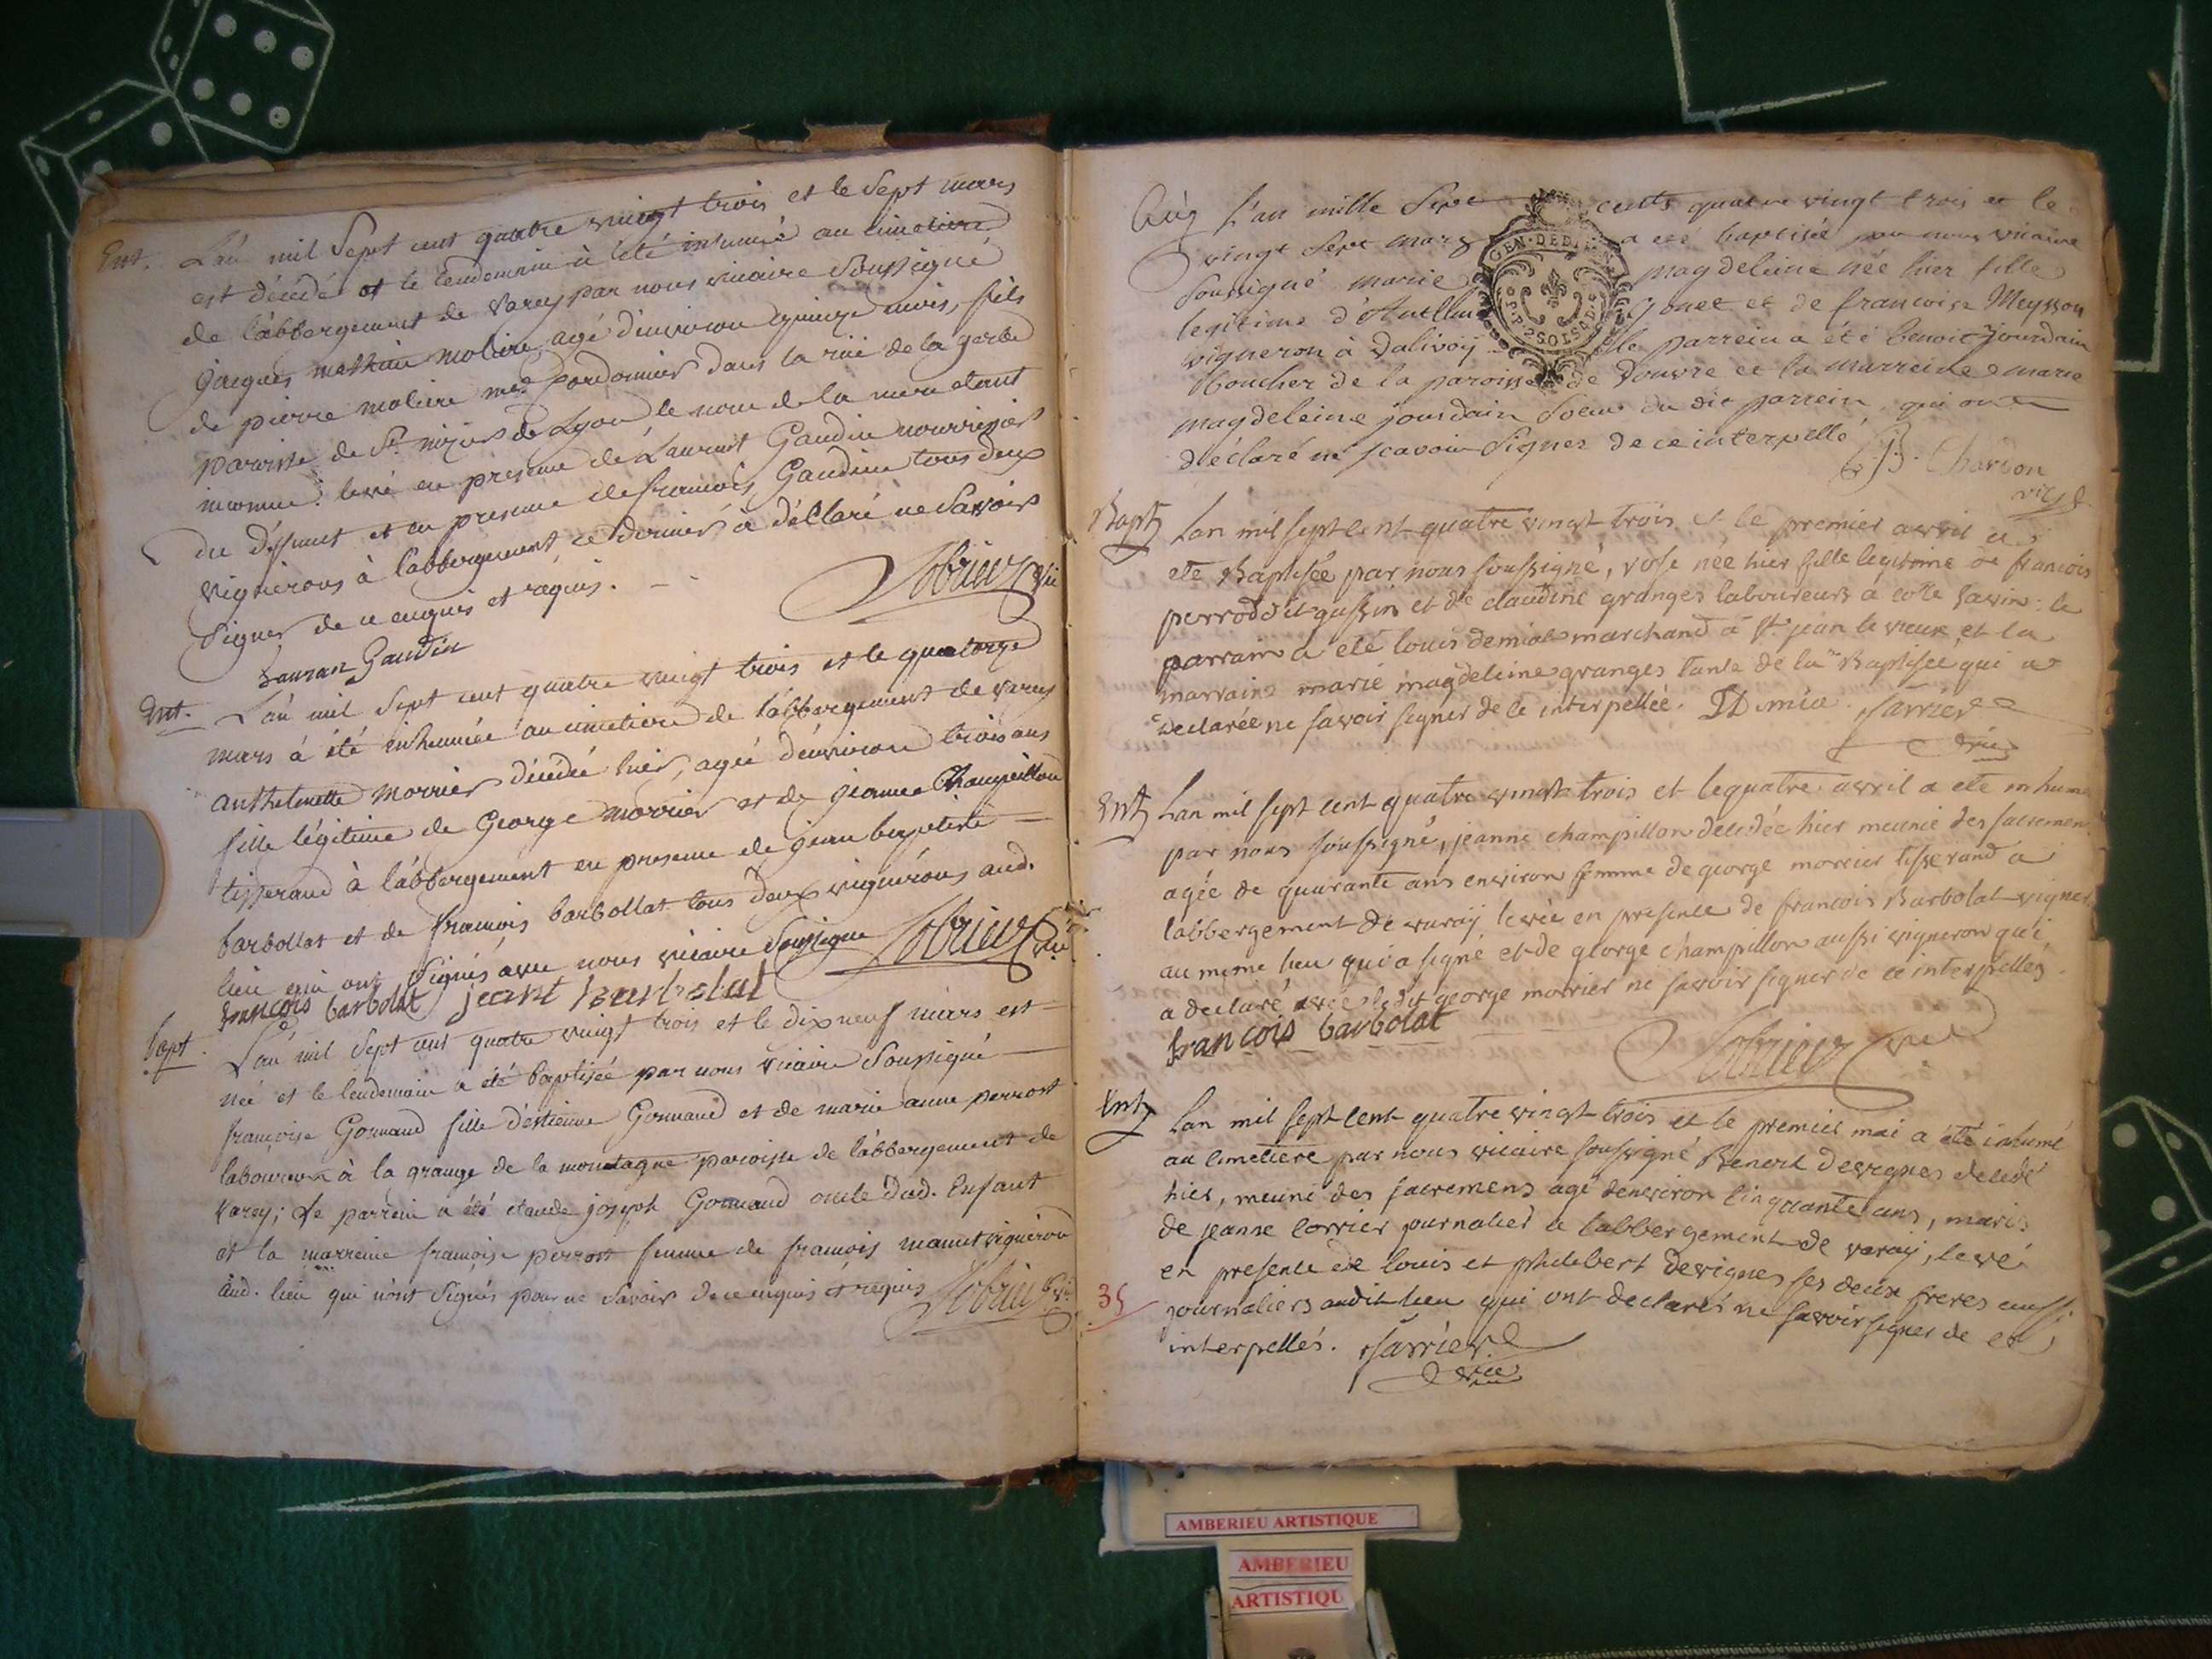 Ent. L'an mil Sept cent quatre vingt trois et le Sept mars
est décédé et le lendemain à été inhumé au cimetiere
de l'abbergement de varey par nous vicaire Soussigné
jacques moliere agé d'environ quinze mois, fils
de pierre moliere cordonnier dans la rüe de la gerbe
paroisse de St. nizier de Lyon le nom de la mere etant
inconnu: levé en présence de Laurent Gaudin nourrissier
du défunt et en presence de francois Gaudin tous deux
vignerons à l'abbergement ce dernier à déclaré ne Savoir
Signer de ce enquis et requis.
Lauran Gaudin
Ent. L'an mil Sept cent quatre vingt trois et le quatorze
mars à été inhumée au cimetiere de l'abbergement de varey
anthelmette morrier décédée hier, agée d'environ trois ans
fille légitime de George morrier et de jeanne Champillon
tisserand à l'abbergement en presence de jean baptiste
barbollat et de francois barbollat tous deux vignérons aud.
lieu qui ont Signés avec nous vicaire Soussigné
francois barbolat jeant barbolat
bapt. L'an mil Sept cent quatre vingt trois et le dixneuf mars est
née et le lendemain a été baptisée par nous vicaire Soussigné
françoise Gonnaud fille d'estienne Gonnaud et de marie anne perrost
laboureur à la grange de la montagne paroisse de l'abbergement de
varey; Le parrein a été claude joseph Gonnaud oncle dud. Enfant
et la marreine françoise perrost femme de francois manut vigneron
aud. lieu qui n'ont Signés pour ne Savoir de ce enquis et requis
L'an mille Sept cents quatre vingt trois et le
vingt Sept mars a été baptisée par nous vicaire
Soussigné marie magdeleine née hier fille
legitime d'Anthelme Gonet et de francoise Meysson
vigneron à Dalivoy le parrein a été benoit jourdain
boucher de la paroisse de Douvre et la marreine marie
magdeleine jourdain Soeur du dit parrein, qui ont
déclaré ne scavoir Signer de ce interpellé J.B. Chardon
GEN. DED
Bapt Lan mil sept cent quatre vingt trois et le premier avril a
ete Baptisée par nous soussigné, rose née hier fille legitime de francois
perrod dit gussin et de claudine granges laboureurs a cote savin: le
parrain a été louis demias marchand a St. jean le vieux et la
marraine marie magdeleine granges tante de la Baptisée qui a
declarée ne savoir signer de ce interpellée. Sarrier
vic
Ent Lan mil sept cent quatre vingt trois et le quatre avril a ete inhumé
par nous soussigné, jeanne champillon decedée hier meunie des sacremen
agée de quarante ans environ femme de george morrier tisserand a
labbergement de varaij, levée en presence de francois Barbolat vigner
au meme lieu qui a signé et de george champillon aussi vigneron qui
a declaré avec ledit george morrier ne savoir signer de ce interpellés
francois barbolat
Ent Lan mil sept cent quatre vingt trois et le premier mai a été inhumé
au cimetiere par nous vicaire soussigné Benoit devignes decedé
hier, meuni des sacremens agé denviron cinquante ans, mari
de jeanne corrier journalier a labbergement de varaij, levé
en presence de louis et philibert devignes ses deux freres aussi
35 journaliers audit lieu qui ont declarés ne savoir signer de ce
interpellés. Sarrier
vic
AMBERIEU ARTISTIQUE
AMBERIEU
ARTISTIQU